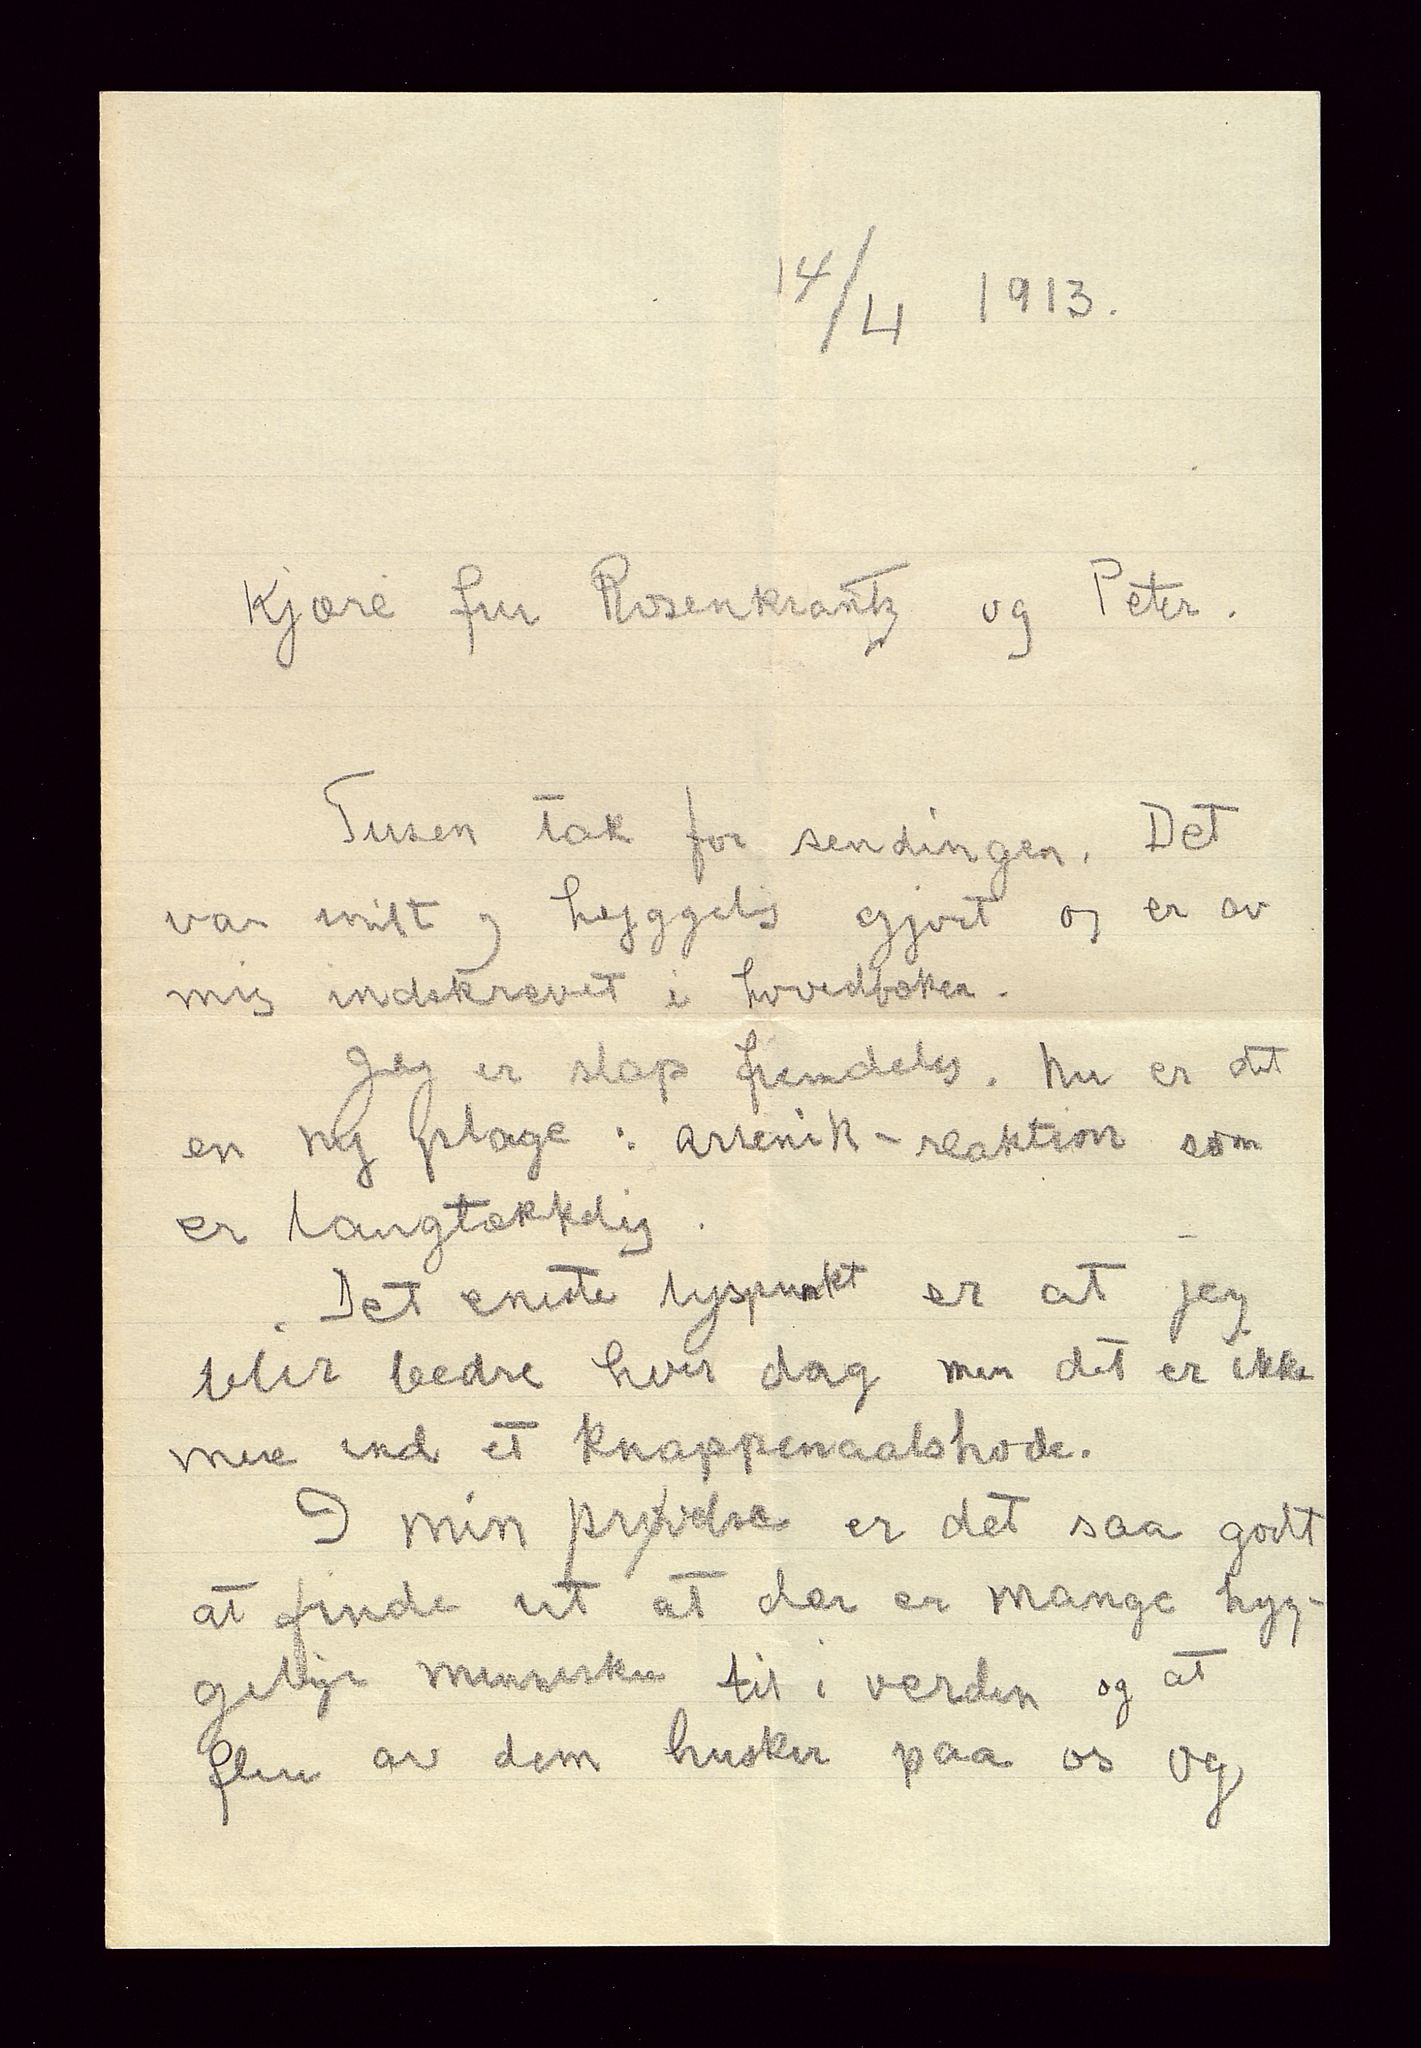 14/4 1913.
Kjære fru Rosenkrantz og Peter.
Tusen tak for sendingen. Det
var snilt og hyggelig gjort og er av
mig indskrevet i hovedboken.
Jeg er slap fremdeles. Nu er det
en ny plage: arsenik-reaktion som
er langtækkelig.
Det eneste lyspunkt er at jeg
blir bedre hver dag men det er ikke
mere end et knappenaalshode.
I min prøvelse er det saa godt
at finde ut at der er mange hyg-
gelige mennesker til i verden og at
flere av dem husker paa os og